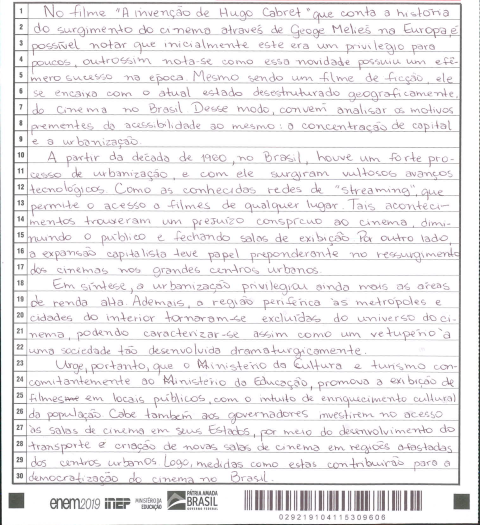 1 No filme "A invenção de Hugo Cabret" que conta a história
2 do surgimento do cinema através de Geoge Meliès na Europa é
3 possível notar que inicialmente este era um privilégio para
4 poucos, outrossim nota-se como essa novidade possuiu um efê-
5 mero sucesso na época. Mesmo sendo um filme de ficção, ele
6 se encaixa com o atual estado desestruturado geograficamente,
7 do cinema no Brasil Desse modo, convém analisar os motivos
8 prementes da acessibilidade ao mesmo: a concentração de capital
9 e a urbanização.
10 A partir da década de 1980, no Brasil, houve um forte pro-
11 cesso de urbanização, e com ele surgiram vultosos avanços
12 tecnológicos. Como as conhecidas redes de "streaming", que
13 permite o acesso a filmes de qualquer lugar. Tais aconteci-
14 mentos trouxeram um prejuízo conspícuo ao cinema, dimi-
15 nuindo o público e fechando salas de exibição Por outro lado,
16 a expansão capitalista teve papel preponderante no ressurgimento
17 dos cinemas nos grandes centros urbanos.
18 Em síntese, a urbanização privilegiou ainda mais as áreas
19 de renda alta Ademais, a região periférica às metrópoles e
20 cidades do interior tornaram-se excluídas do universo do ci-
21 nema, podendo caracterizar-se assim como um vetupério à
22 uma sociedade tão desenvolvida dramaturgicamente.
23 Urge, portanto, que o Ministério da Cultura e turismo con-
24 comitantemente ao Ministério da Educação, promova a exibição de
25 filmes em locais públicos, com o intuito de enriquecimento cultural
26 da população Cabe também aos governadores investirem no acesso
27 às salas de cinema em seus Estados, por meio do desenvolvimento do
28 transporte e criação de novas salas de cinema em regiões afastadas
29 dos centros urbanos Logo, medidas como estas contribuirão para a
30 democratização do cinema no Brasil.
enem2019 inep MINISTÉRIO DA EDUCAÇÃO PÁTRIA AMADA BRASIL
029219104115309606